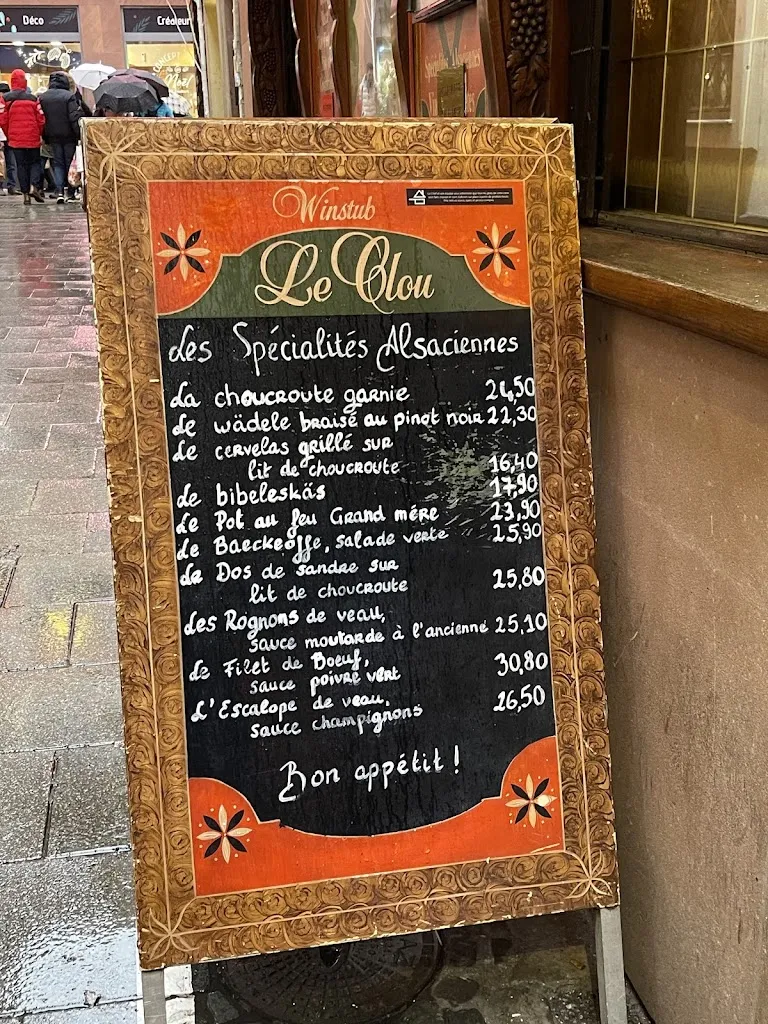 Déco
Créateur
Winstub
Le Clou
Les Spécialités Alsaciennes
La choucroute garnie 24,50
Le wädele braisé au pinot noir 22,30
Le cervelas grillé sur
lit de choucroute 16,40
Le bibeleskäs 17,90
Le Pot au feu Grand mére 23,90
Le Baeckeoffe, salade verte 25,90
Le Dos de sandre sur
lit de choucroute 25,80
Les Rognons de veau,
sauce moutarde à l'ancienne 25,10
Le Filet de Boeuf,
sauce poivre vert 30,80
L'Escalope de veau,
sauce champignons 26,50
Bon appétit !